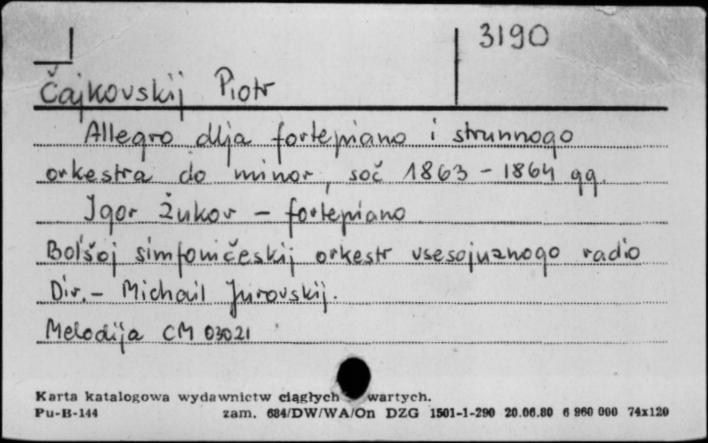 3190
Čajkovskij Piotr
Allegro dlja fortepiano i strunnogo
orkestra do minor, soč 1863 - 1864 gg.
Igor Žukov - fortepiano
Bol'šoj simfoničeskij orkestr vsesojuznogo radio
Dir. - Michail Jurovskij.
Melodija CM 03021
Karta katalogowa wydawnictw ciągłych wartych.
Pu-B-144 zam. 684/DW/WA/On DZG 1501-1-290 20.06.80 6 960 000 74x120